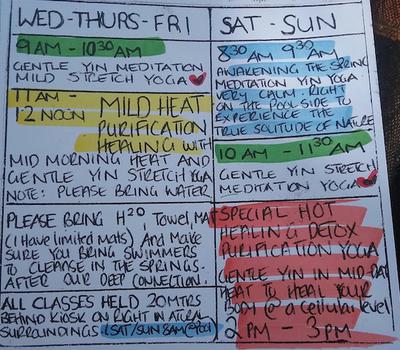 WED-THURS-FRI
9AM - 10:30AM
GENTLE YIN MEDITATION
MILD STRETCH YOGA
11AM -
12 NOON
MILD HEAT
PURIFICATION
HEALING WITH
MID MORNING HEAT AND
GENTLE YIN STRETCH YOGA
NOTE: PLEASE BRING WATER
PLEASE BRING H20, Towel, MAT
(I Have limited mats) And MAKE
SURE YOU BRING SWIMMERS
TO CLEANSE IN THE SPRINGS.
AFTER OUR DEEP CONNECTION.
ALL CLASSES HELD 20MTRS
BEHIND KIOSK ON RIGHT IN NATURAL
SURROUNDINGS (SAT/SUN 8AM @POOL)
SAT - SUN
8:30 AM 9:30 AM
AWAKENING THE SPRING
MEDITATION YIN YOGA
VERY CALM. RIGHT
ON THE POOL SIDE TO
EXPERIENCE THE
TRUE SOLITUDE OF NATURE
10 AM - 11:30AM
GENTLE YIN STRETCH
MEDITATION YOGA
SPECIAL HOT
HEALING DETOX
PURIFICATION YOGA
GENTLE YIN IN MID-DAY
HEAT TO HEAL YOUR
BODY @ a Cellular level
2PM - 3PM